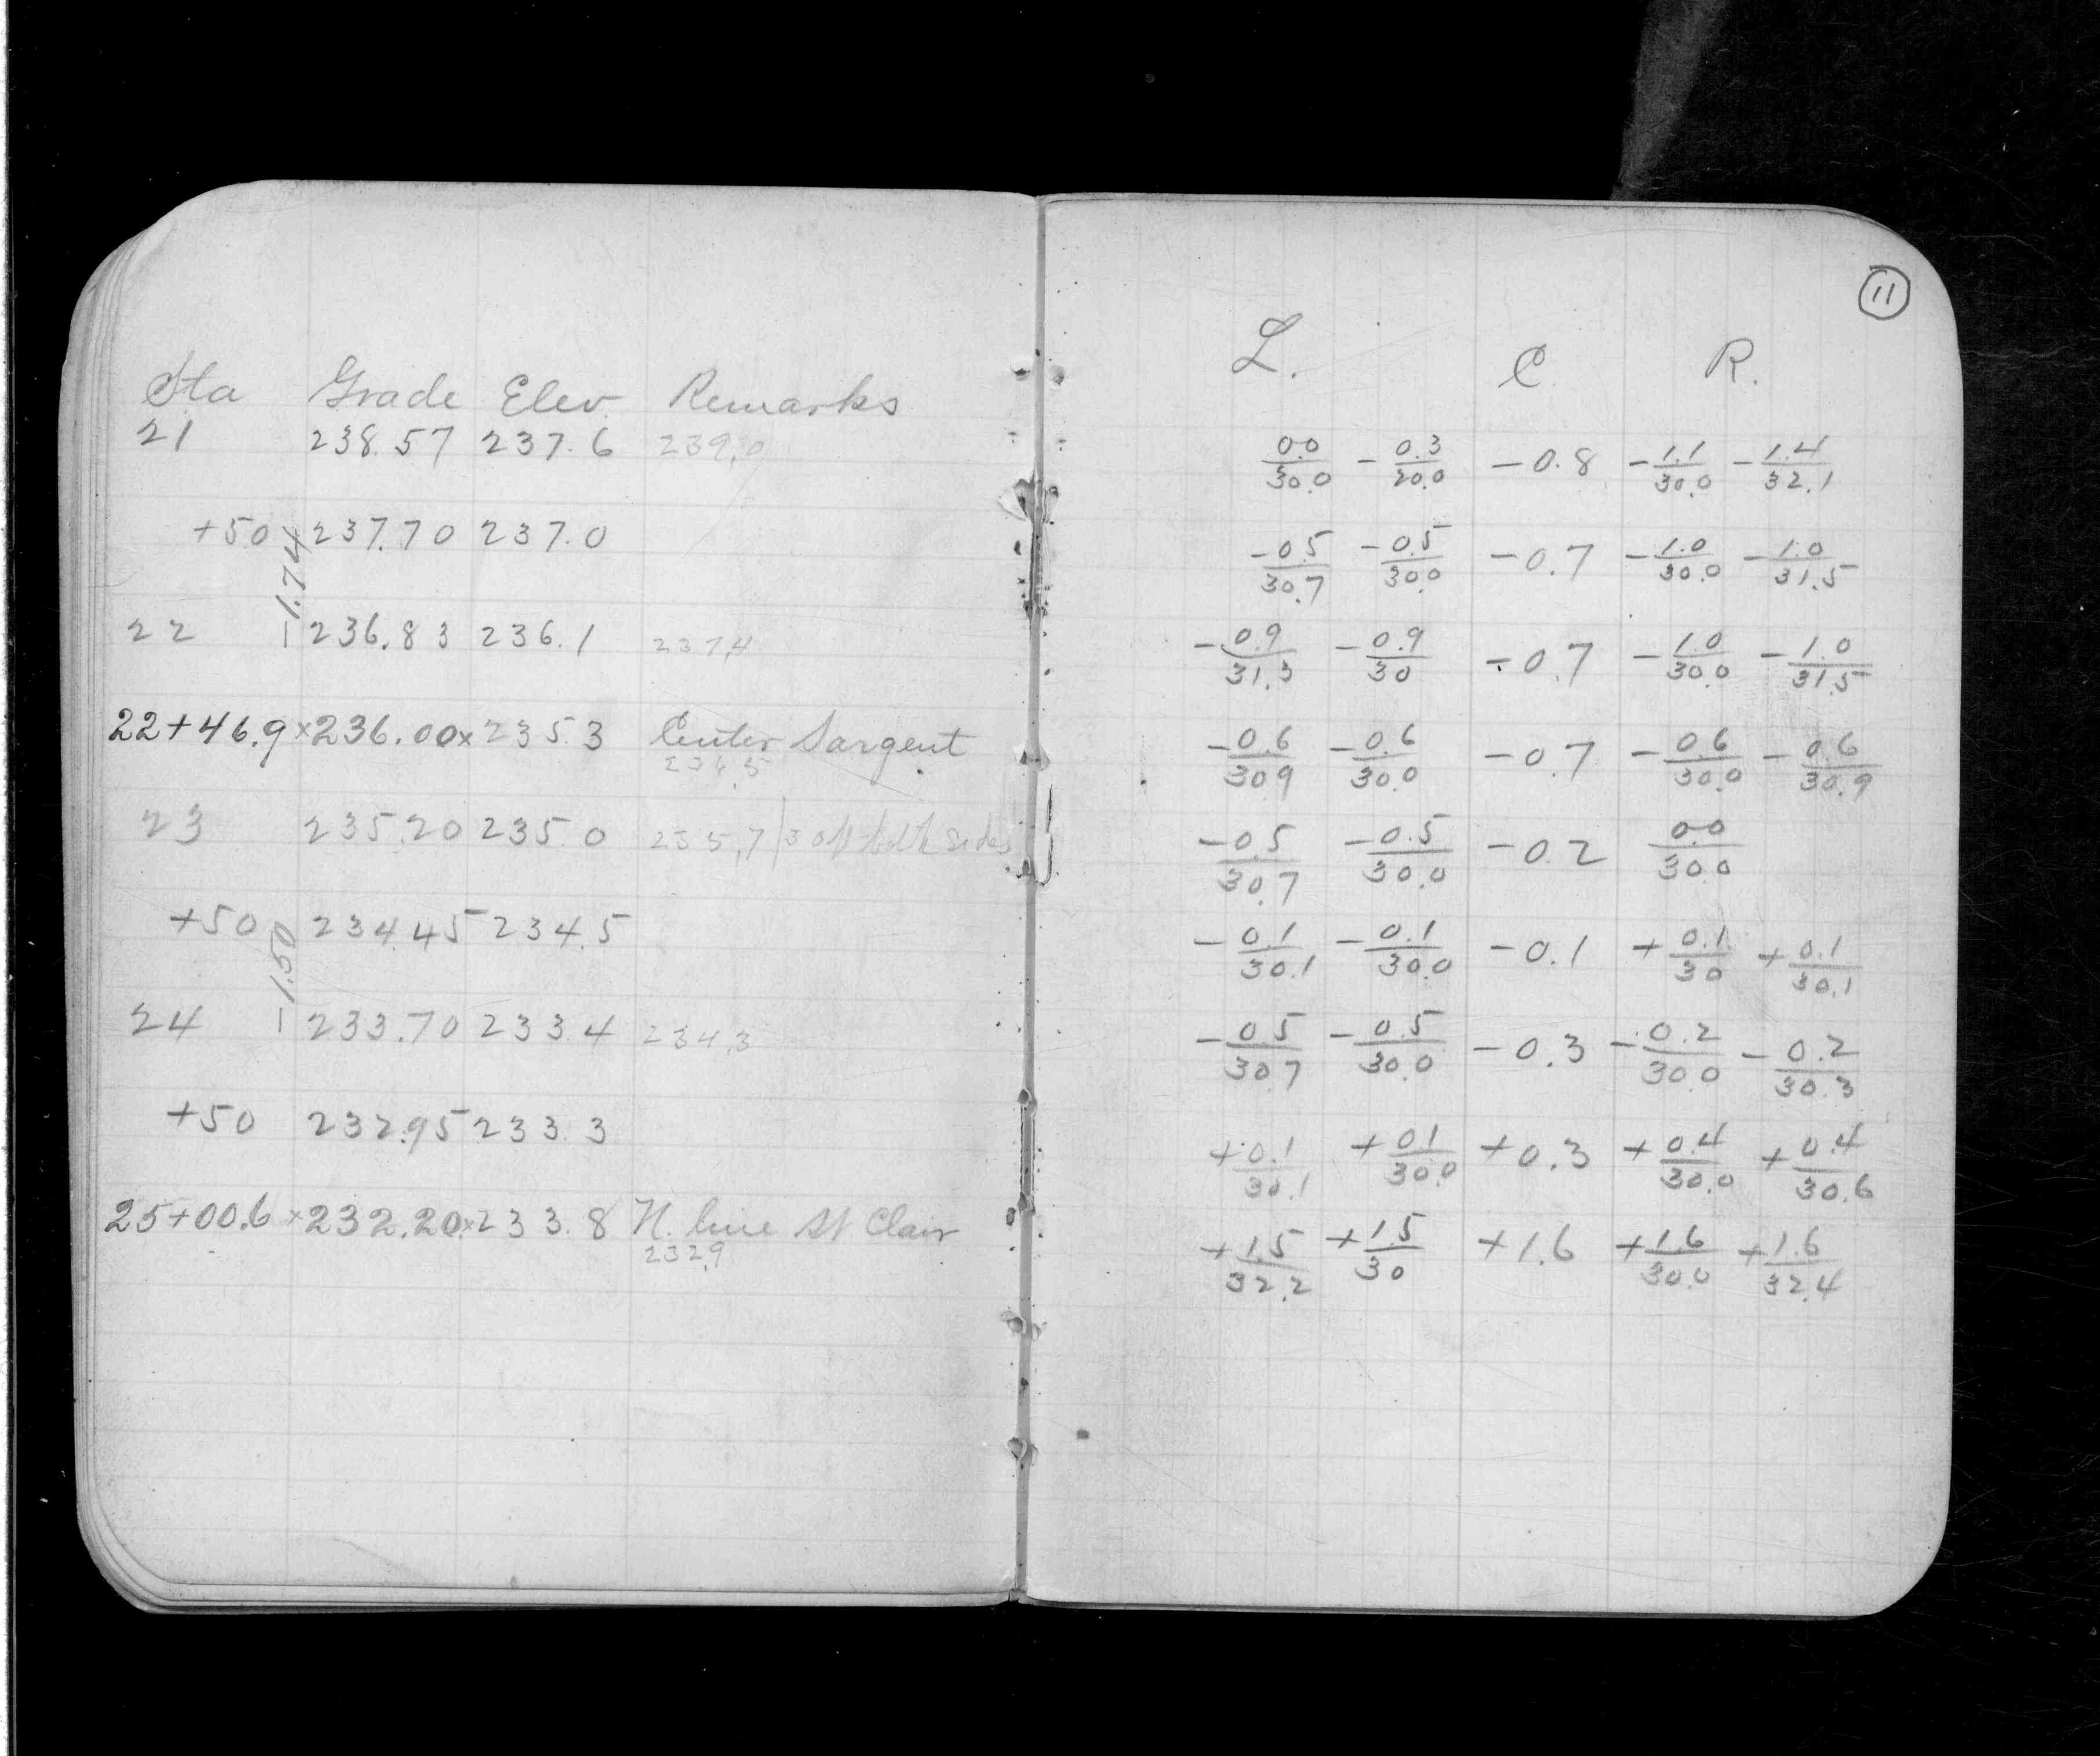 Sta Grade Elev. Remarks
21 238.57 237.6 239.0
+50 237.70 237.0
-1.74
22 236.83 236.1 237.4
22+46.9 x 236.00 x 235.3 Center Sargent
23 235.20 235.0 235.7 / 30 both sides
+50 234.45 234.5
-1.50
24 233.70 233.4 234.3
+50 232.95 233.3
25+00.6 x 232.20 x 233.8 N. line St Clair
232.9
11
L. C. R.
0.0/30.0 -0.3/20.0 -0.8 -1.1/30.0 -1.4/32.1
-0.5/30.7 -0.5/30.0 -0.7 -1.0/30.0 -1.0/31.5
-0.9/31.3 -0.9/30 -0.7 -1.0/30.0 -1.0/31.5
-0.6/30.9 -0.6/30.0 -0.7 -0.6/30.0 -0.6/30.9
-0.5/30.7 -0.5/30.0 -0.2 0.0/30.0
-0.1/30.1 -0.1/30.0 -0.1 +0.1/30 +0.1/30.1
-0.5/30.7 -0.5/30.0 -0.3 -0.2/30.0 -0.2/30.3
+0.1/30.1 +0.1/30.0 +0.3 +0.4/30.0 +0.4/30.6
+1.5/32.2 +1.5/30 +1.6 +1.6/30.0 +1.6/32.4